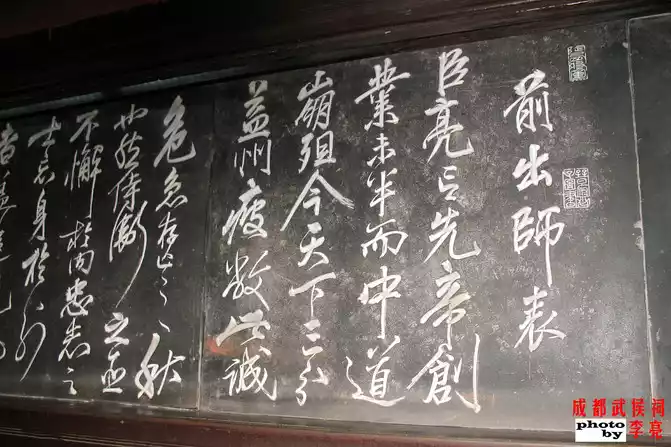 前出師表
臣亮言先帝創
業未半而中道
崩殂今天下三分
益州疲敝此誠
危急存亡之秋
也然侍衛之臣
不懈於内忠志之
士忘身於外
者蓋追
成都武侯祠
photo by 李亮